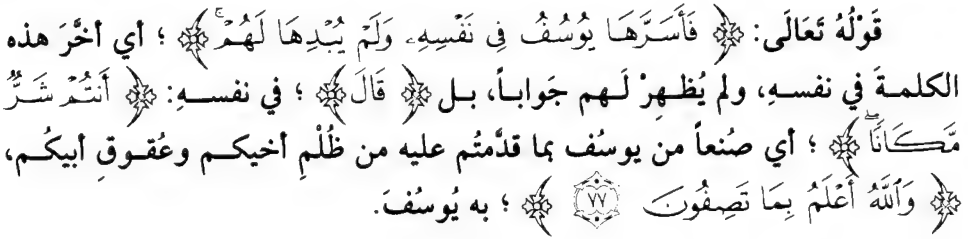 قَوْلُهُ تَعَالَى: ﴿ فَأَسَرَّهَا يُوسُفُ فِي نَفْسِهِۦ وَلَمْ يُبْدِهَا لَهُمْۚ ﴾ ؛ أي أخَّرَ هذه
الكلمةَ في نفسهِ، ولم يُظهِرْ لَهم جَواباً، بل ﴿ قَالَ ﴾ ؛ في نفسهِ: ﴿ أَنتُمْ شَرٌّ
مَّكَانًاۖ ﴾ ؛ أي صُنعاً من يوسُف بما قدَّمتُم عليه من ظُلْمِ أخيكم وعُقوقِ أبيكُم،
﴿ وَاللَّهُ أَعْلَمُ بِمَا تَصِفُونَ ٧٧ ﴾ ؛ به يُوسُفَ.